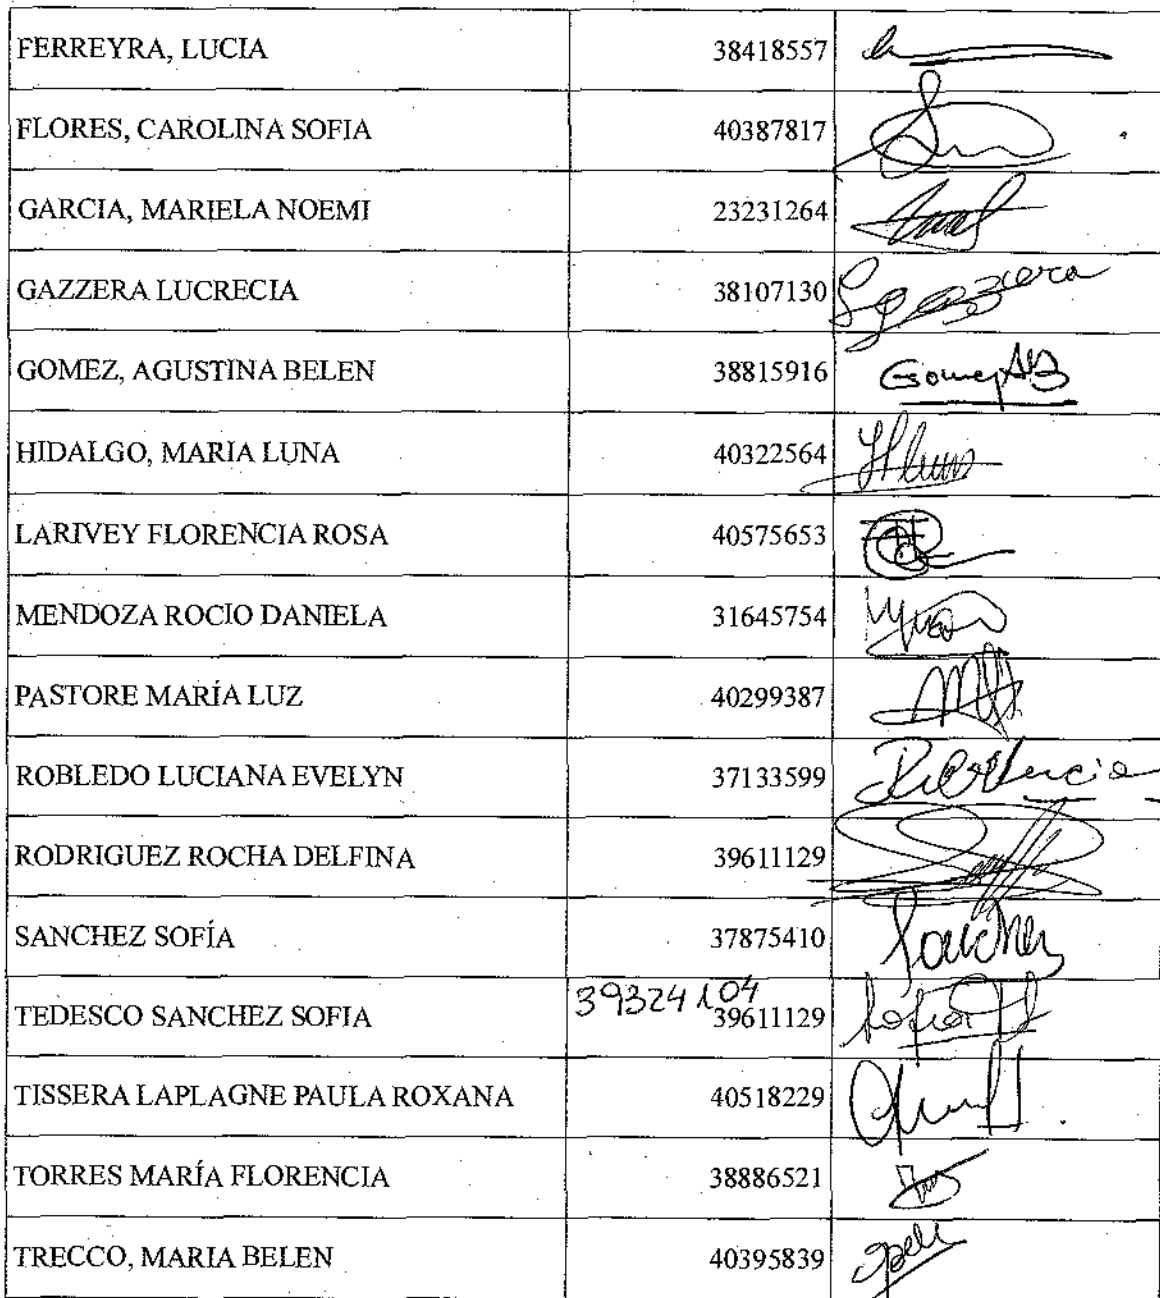 FERREYRA, LUCIA 38418557
FLORES, CAROLINA SOFIA 40387817
GARCIA, MARIELA NOEMI 23231264
GAZZERA LUCRECIA 38107130 Lgazzera
GOMEZ, AGUSTINA BELEN 38815916 Gomez AB
HIDALGO, MARIA LUNA 40322564
LARIVEY FLORENCIA ROSA 40575653
MENDOZA ROCIO DANIELA 31645754
PASTORE MARÍA LUZ 40299387
ROBLEDO LUCIANA EVELYN 37133599
RODRIGUEZ ROCHA DELFINA 39611129
SANCHEZ SOFÍA 37875410 Sanchez
39324104
TEDESCO SANCHEZ SOFIA 39611129 Sofia
TISSERA LAPLAGNE PAULA ROXANA 40518229
TORRES MARÍA FLORENCIA 38886521
TRECCO, MARIA BELEN 40395839